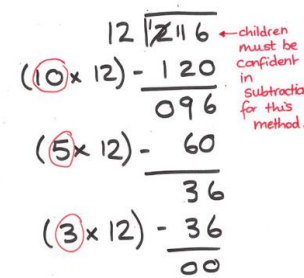 12 216 ←children
must be
confident
in
subtractio
for this
method.
(10 x 12) - 120
096
(5 x 12) - 60
36
(3 x 12) - 36
00